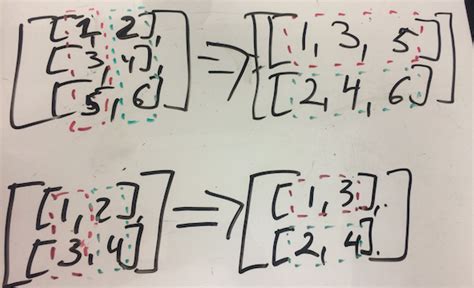 [[1, 2], => [[1, 3, 5]
[3, 4], [2, 4, 6]]
[5, 6]]
[[1, 2], => [[1, 3],
[3, 4]] [2, 4].]